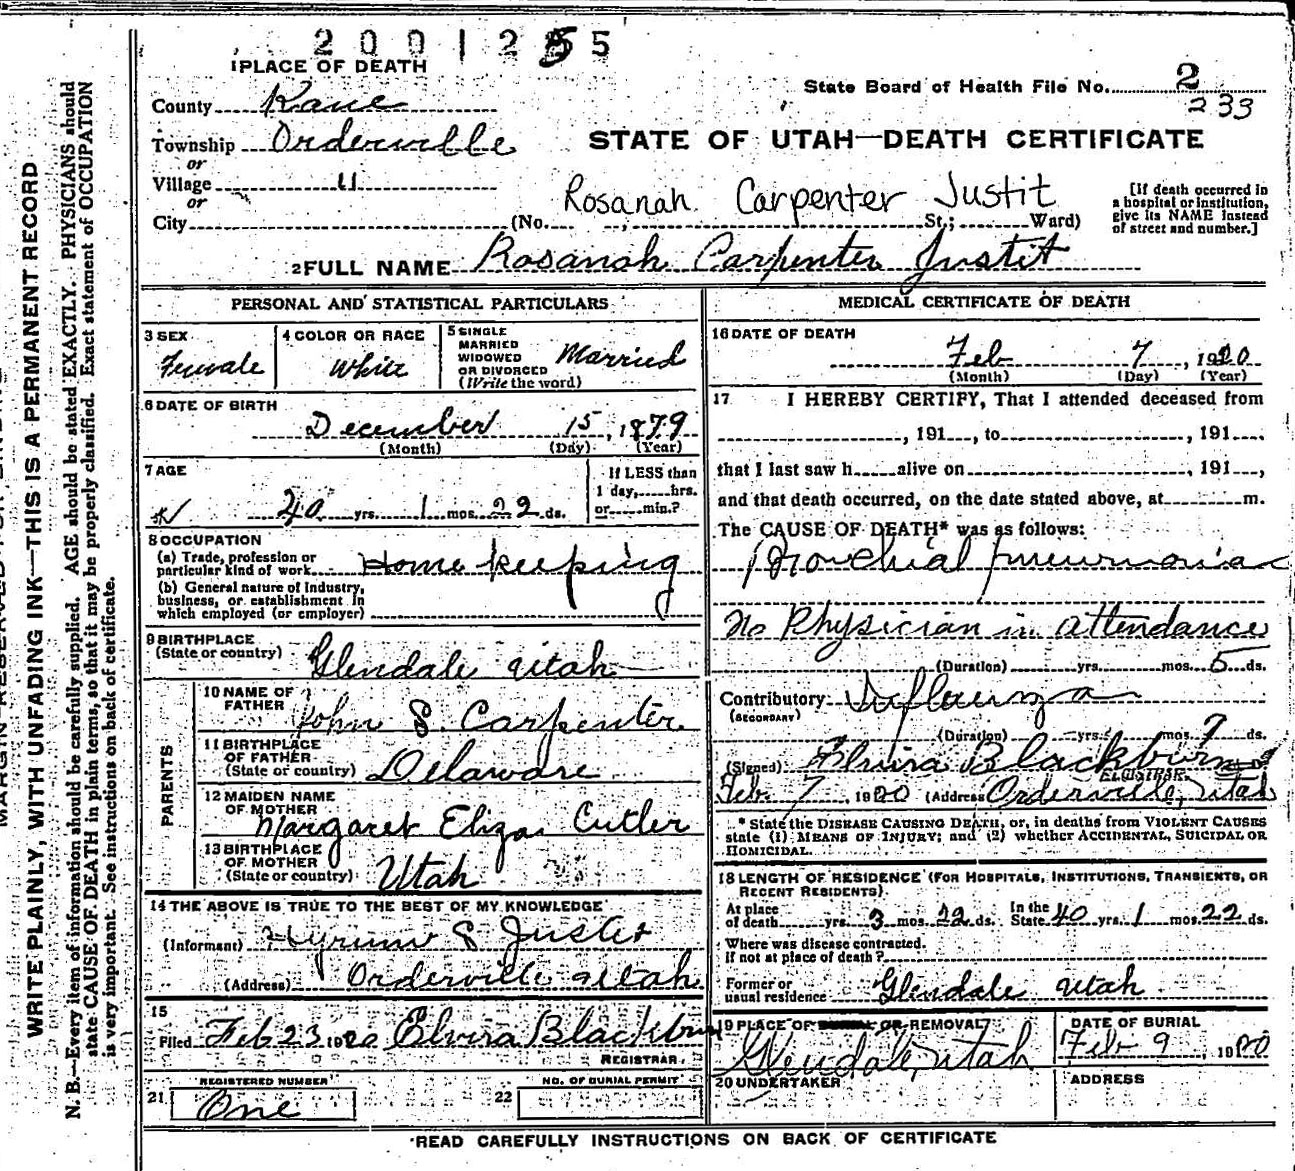 2001255
1 PLACE OF DEATH
State Board of Health File No. 2
233
County Kane
STATE OF UTAH—DEATH CERTIFICATE
Township Orderville
or
Village "
or
City (No. , St.; Ward)
Rosanah Carpenter Justit
[If death occurred in a hospital or institution, give its NAME instead of street and number.]
2 FULL NAME Rosanah Carpenter Justit
PERSONAL AND STATISTICAL PARTICULARS
3 SEX
Female
4 COLOR OR RACE
White
5 SINGLE
MARRIED
WIDOWED
OR DIVORCED
(Write the word)
Married
6 DATE OF BIRTH
December 15, 1879
(Month) (Day) (Year)
7 AGE
40 yrs. 1 mos. 22 ds.
If LESS than
1 day, hrs.
or min.?
8 OCCUPATION
(a) Trade, profession or
particular kind of work Home keeping
(b) General nature of industry,
business, or establishment in
which employed (or employer)
9 BIRTHPLACE
(State or country) Glendale Utah
PARENTS
10 NAME OF
FATHER John S. Carpenter
11 BIRTHPLACE
OF FATHER
(State or country) Delaware
12 MAIDEN NAME
OF MOTHER
Margaret Eliza Cutler
13 BIRTHPLACE
OF MOTHER
(State or country) Utah
14 THE ABOVE IS TRUE TO THE BEST OF MY KNOWLEDGE
(Informant) Hyrum S Justet
(Address) Orderville Utah
15
Filed Feb 23 1920 Elvira Blackburn
REGISTRAR.
REGISTERED NUMBER
21 One
NO. OF BURIAL PERMIT
22
MEDICAL CERTIFICATE OF DEATH
16 DATE OF DEATH
Feb 7, 1920
(Month) (Day) (Year)
17 I HEREBY CERTIFY, That I attended deceased from
, 191 , to , 191 .
that I last saw h alive on , 191 ,
and that death occurred, on the date stated above, at m.
The CAUSE OF DEATH* was as follows:
Bronchial pneumonia
No Physician in attendance
(Duration) yrs. mos. 5 ds.
Contributory Influenza
(SECONDARY)
(Duration) yrs. mos. 7 ds.
(Signed) Elvira Blackburn
REGISTRAR
Feb. 7, 1920 (Address) Orderville, Utah
* State the DISEASE CAUSING DEATH, or, in deaths from VIOLENT CAUSES
state (1) MEANS OF INJURY; and (2) whether ACCIDENTAL, SUICIDAL OR
HOMICIDAL.
18 LENGTH OF RESIDENCE (FOR HOSPITALS, INSTITUTIONS, TRANSIENTS, OR
RECENT RESIDENTS).
At place
of death yrs. 3 mos. 22 ds. In the
State 40 yrs. 1 mos. 22 ds.
Where was disease contracted.
if not at place of death?
Former or
usual residence Glendale Utah
19 PLACE OF BURIAL OR REMOVAL
Glendale, Utah
DATE OF BURIAL
Feb 9, 1920
20 UNDERTAKER
ADDRESS
READ CAREFULLY INSTRUCTIONS ON BACK OF CERTIFICATE
WRITE PLAINLY, WITH UNFADING INK—THIS IS A PERMANENT RECORD
N. B.—Every item of information should be carefully supplied. AGE should be stated EXACTLY. PHYSICIANS should
state CAUSE OF DEATH in plain terms, so that it may be properly classified. Exact statement of OCCUPATION
is very important. See instructions on back of certificate.